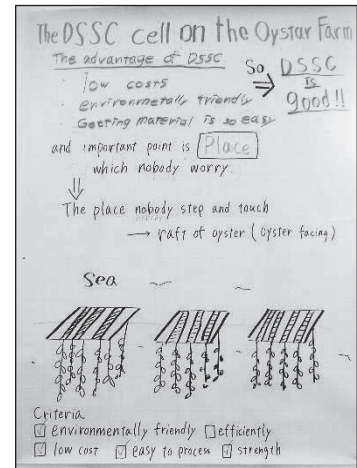 The DSSC cell on the Oystar Farm
The advantage of DSSC
・low costs
・environmentally friendly
・Getting material is so easy
So ⇒ DSSC is good!!
and important point is Place
which nobody worry.
⇓
The place nobody step and touch
→ raft of oyster (oyster facing)
Sea
Criteria
☑ environmentally friendly ☐ efficiently
☑ low cost ☑ easy to process ☑ strength